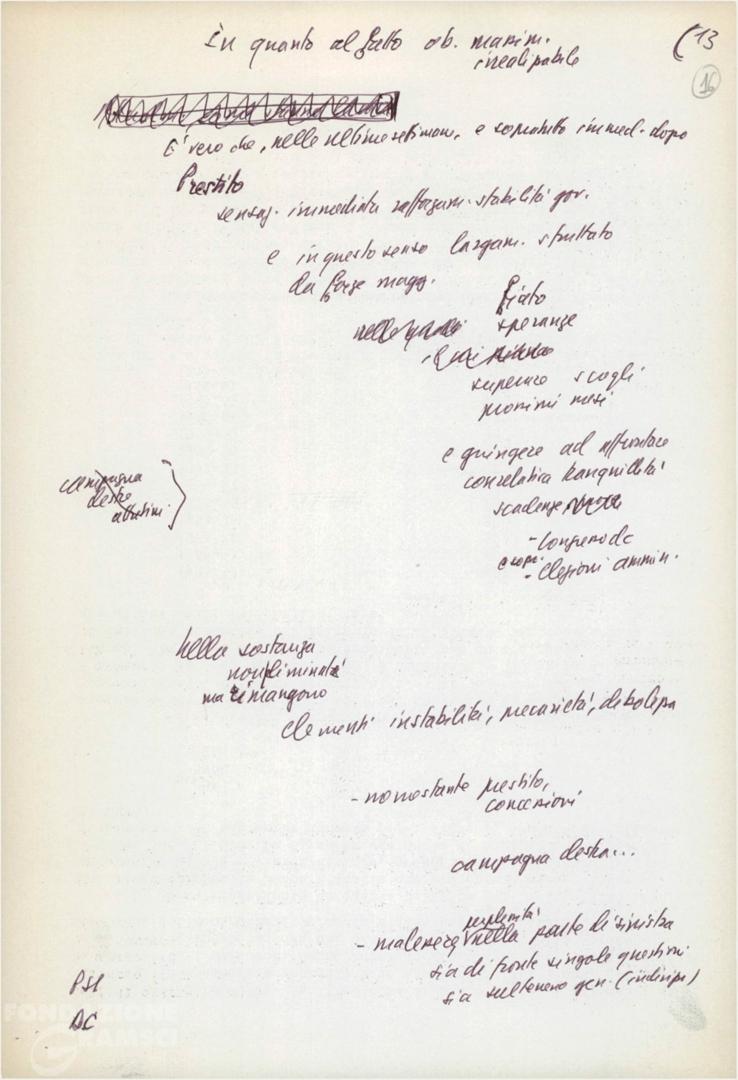 In quanto al fatto ob. massim.
irrealizzabile
(13
16
E' vero che, nelle ultime settimane, e soprattutto immed. dopo
Prestito
sensaz. immediata rafforzam. stabilità gov.
e in questo senso largam. sfruttato
da forze magg.
fiato
speranze
superare scogli
prossimi mesi
e giungere ad affrontare
con relativa tranquillità
scadenze
- Congresso dc
- Elezioni ammin.
campagna
destra
Nella sostanza
non eliminati
ma rimangono
Elementi instabilità, precarietà, debolezza
- nonostante prestito,
concessioni
campagna destra...
perplessità
- malessere nella parte di sinistra
sia di fronte singole questioni
sia sul terreno gen. (indirizzi)
PSI
DC
FONDAZIONE
GRAMSCI